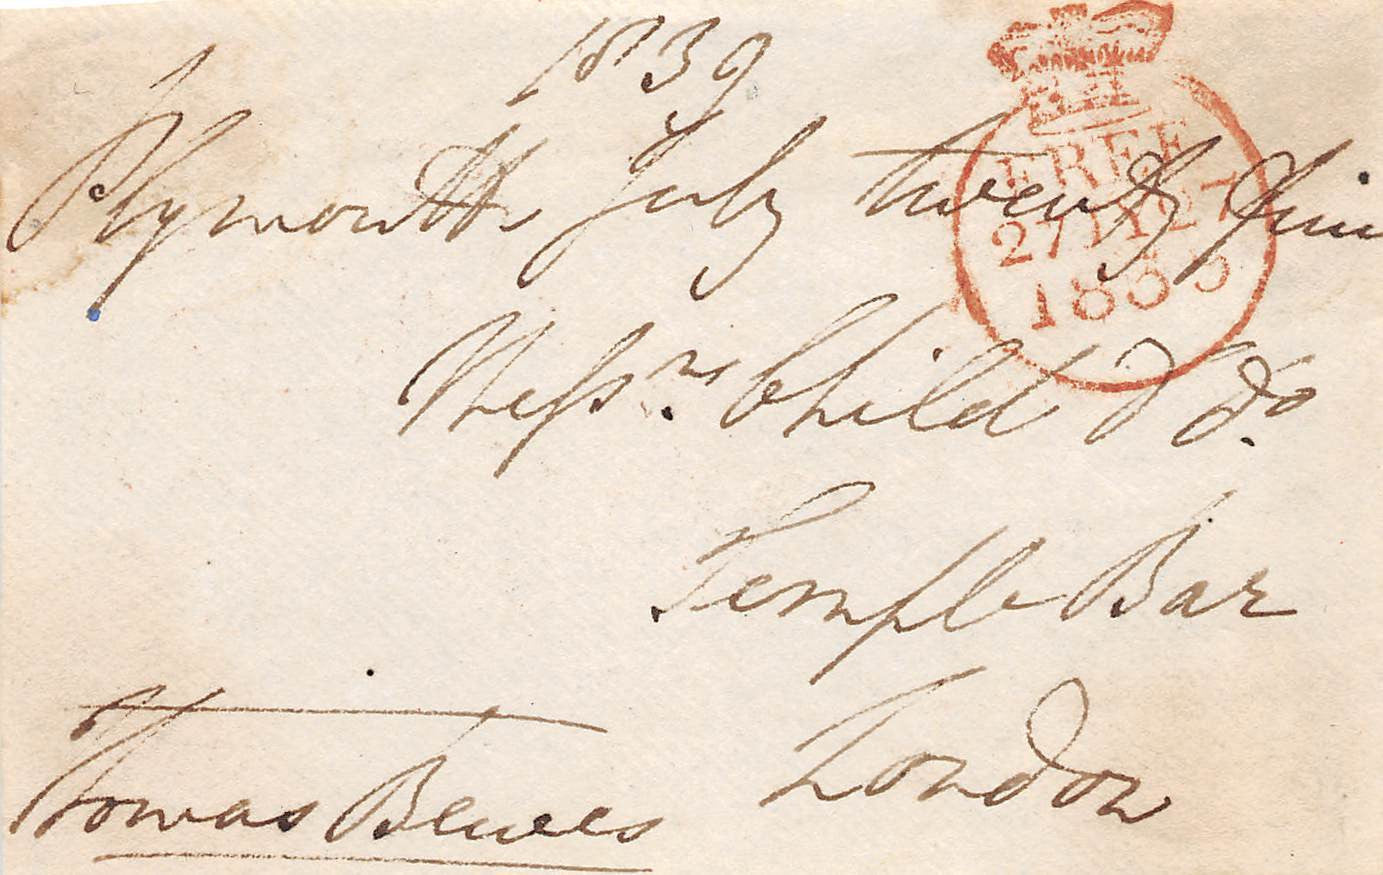 1839
Plymouth July twenty
FREE
27JY27
1839
Messrs Child & Co
Temple Bar
London
Thomas Bewes